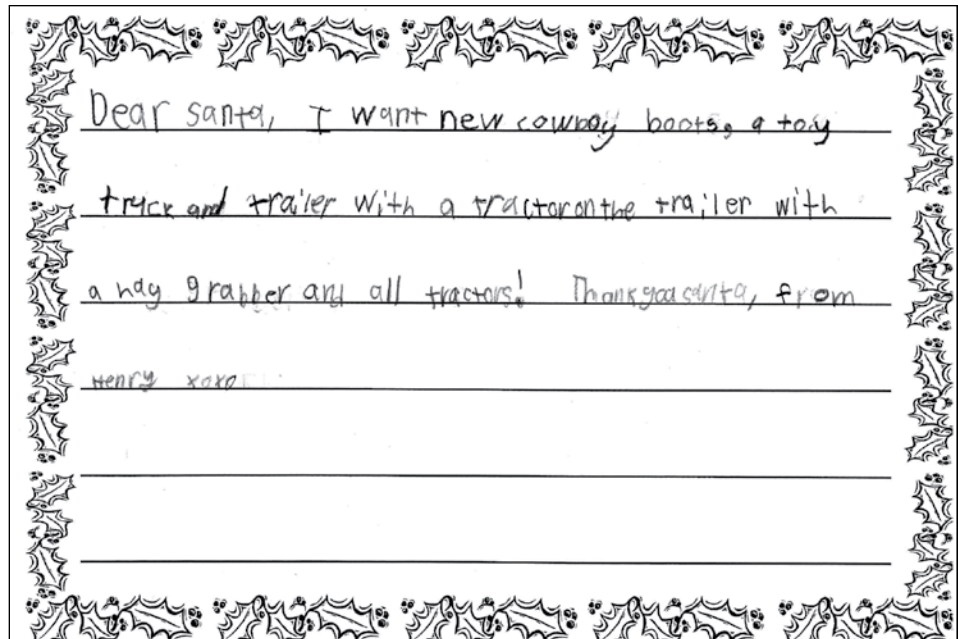 Dear santa, I want new cowboy boots, a toy
truck and trailer with a tractor on the trailer with
a hay grabber and all tractors! Thank you santa, from
Henry xoxo